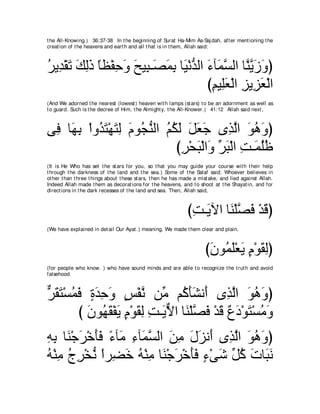 the All-Knowing.) 36:37-38 In the beginning of Surat Ha-Mim As-Sajdah, after mentioning the
creation of the heavens and earth and all that is in them, Allah said:
وَزَيَّنَّا السَّمَآءَ الدُّنْيَا بِمَصَـبِيحَ وَحِفْظاً ذَلِكَ تَقْدِيرُ)
(الْعَزِيزِ الْعَلِيمِ
(And We adorned the nearest (lowest) heaven with lamps (stars) to be an adornment as well as
to guard. Such is the decree of Him, the Almighty, the All-Knower.) 41:12 Allah said next,
وَهُوَ الَّذِى جَعَلَ لَكُمُ النُّجُومَ لِتَهْتَدُواْ بِهَا فِى)
(ظُلُمَـتِ الْبَرِّ وَالْبَحْرِ
(It is He Who has set the stars for you, so that you may guide your course with their help
through the darkness of the land and the sea.) Some of the Salaf said; Whoever believes in
other than three things about these stars, then he has made a mistake, and lied against Allah.
Indeed Allah made them as decorations for the heavens, and to shoot at the Shayatin, and for
directions in the dark recesses of the land and sea. Then, Allah said,
(قَدْ فَصَّلْنَا الاٌّيَـتِ
(We have explained in detail Our Ayat.) meaning, We made them clear and plain,
(لِقَوْمٍ يَعْلَمُونَ)
(for people who know. ) who have sound minds and are able to recognize the truth and avoid
falsehood.
وَهُوَ الَّذِى أَنشَأَكُم مِّن نَّفْسٍ وَحِدَةٍ فَمُسْتَقَرٌّ)
(وَمُسْتَوْدَعٌ قَدْ فَصَّلْنَا الاٌّيَـتِ لِقَوْمٍ يَفْقَهُونَ
وَهُوَ الَّذِى أَنزَلَ مِنَ السَّمَآءِ مَآءً فَأَخْرَجْنَا بِهِ)
نَبَاتَ كُلِّ شَىْءٍ فَأَخْرَجْنَا مِنْهُ خَضِراً نُّخْرِجُ مِنْهُ